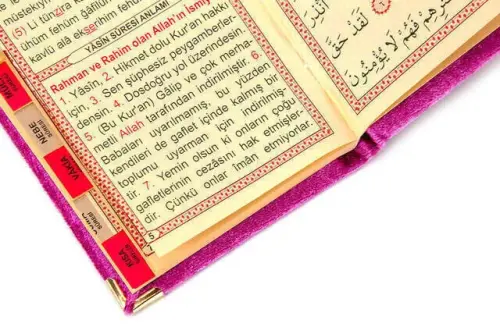 (5) Li tünzira
ühüm fehüm ğâfilûn
kavlü alâ ekserihim fehüm
YÂSİN SURESİ ANLAMI
Rahman ve Rahim olan Allah'ın İsmiy
1. Yâsin. 2. Hikmet dolu Kur'an hakkı
için. 3. Sen şüphesiz peygamberler-
densin. 4. Dosdoğru yol üzerindesin.
5. (Bu Kur'an) Gâlip ve çok merha-
metli Allah tarafından indirilmiştir. 6.
Babaları uyarılmamış, bu yüzden
kendileri de gaflet içinde kalmış bir
toplumu uyarman için indirilmiş-
tir. 7. Yemin olsun ki onların çoğu
gafletlerinin cezâsını hak etmişler-
dir. Çünkü onlar îman etmiyorlar.
لَقَدْ حَقَّ
فَهُمْ لَا يُؤْمِنُونَ
NEBE
SURESİ
VAKIA
KISA